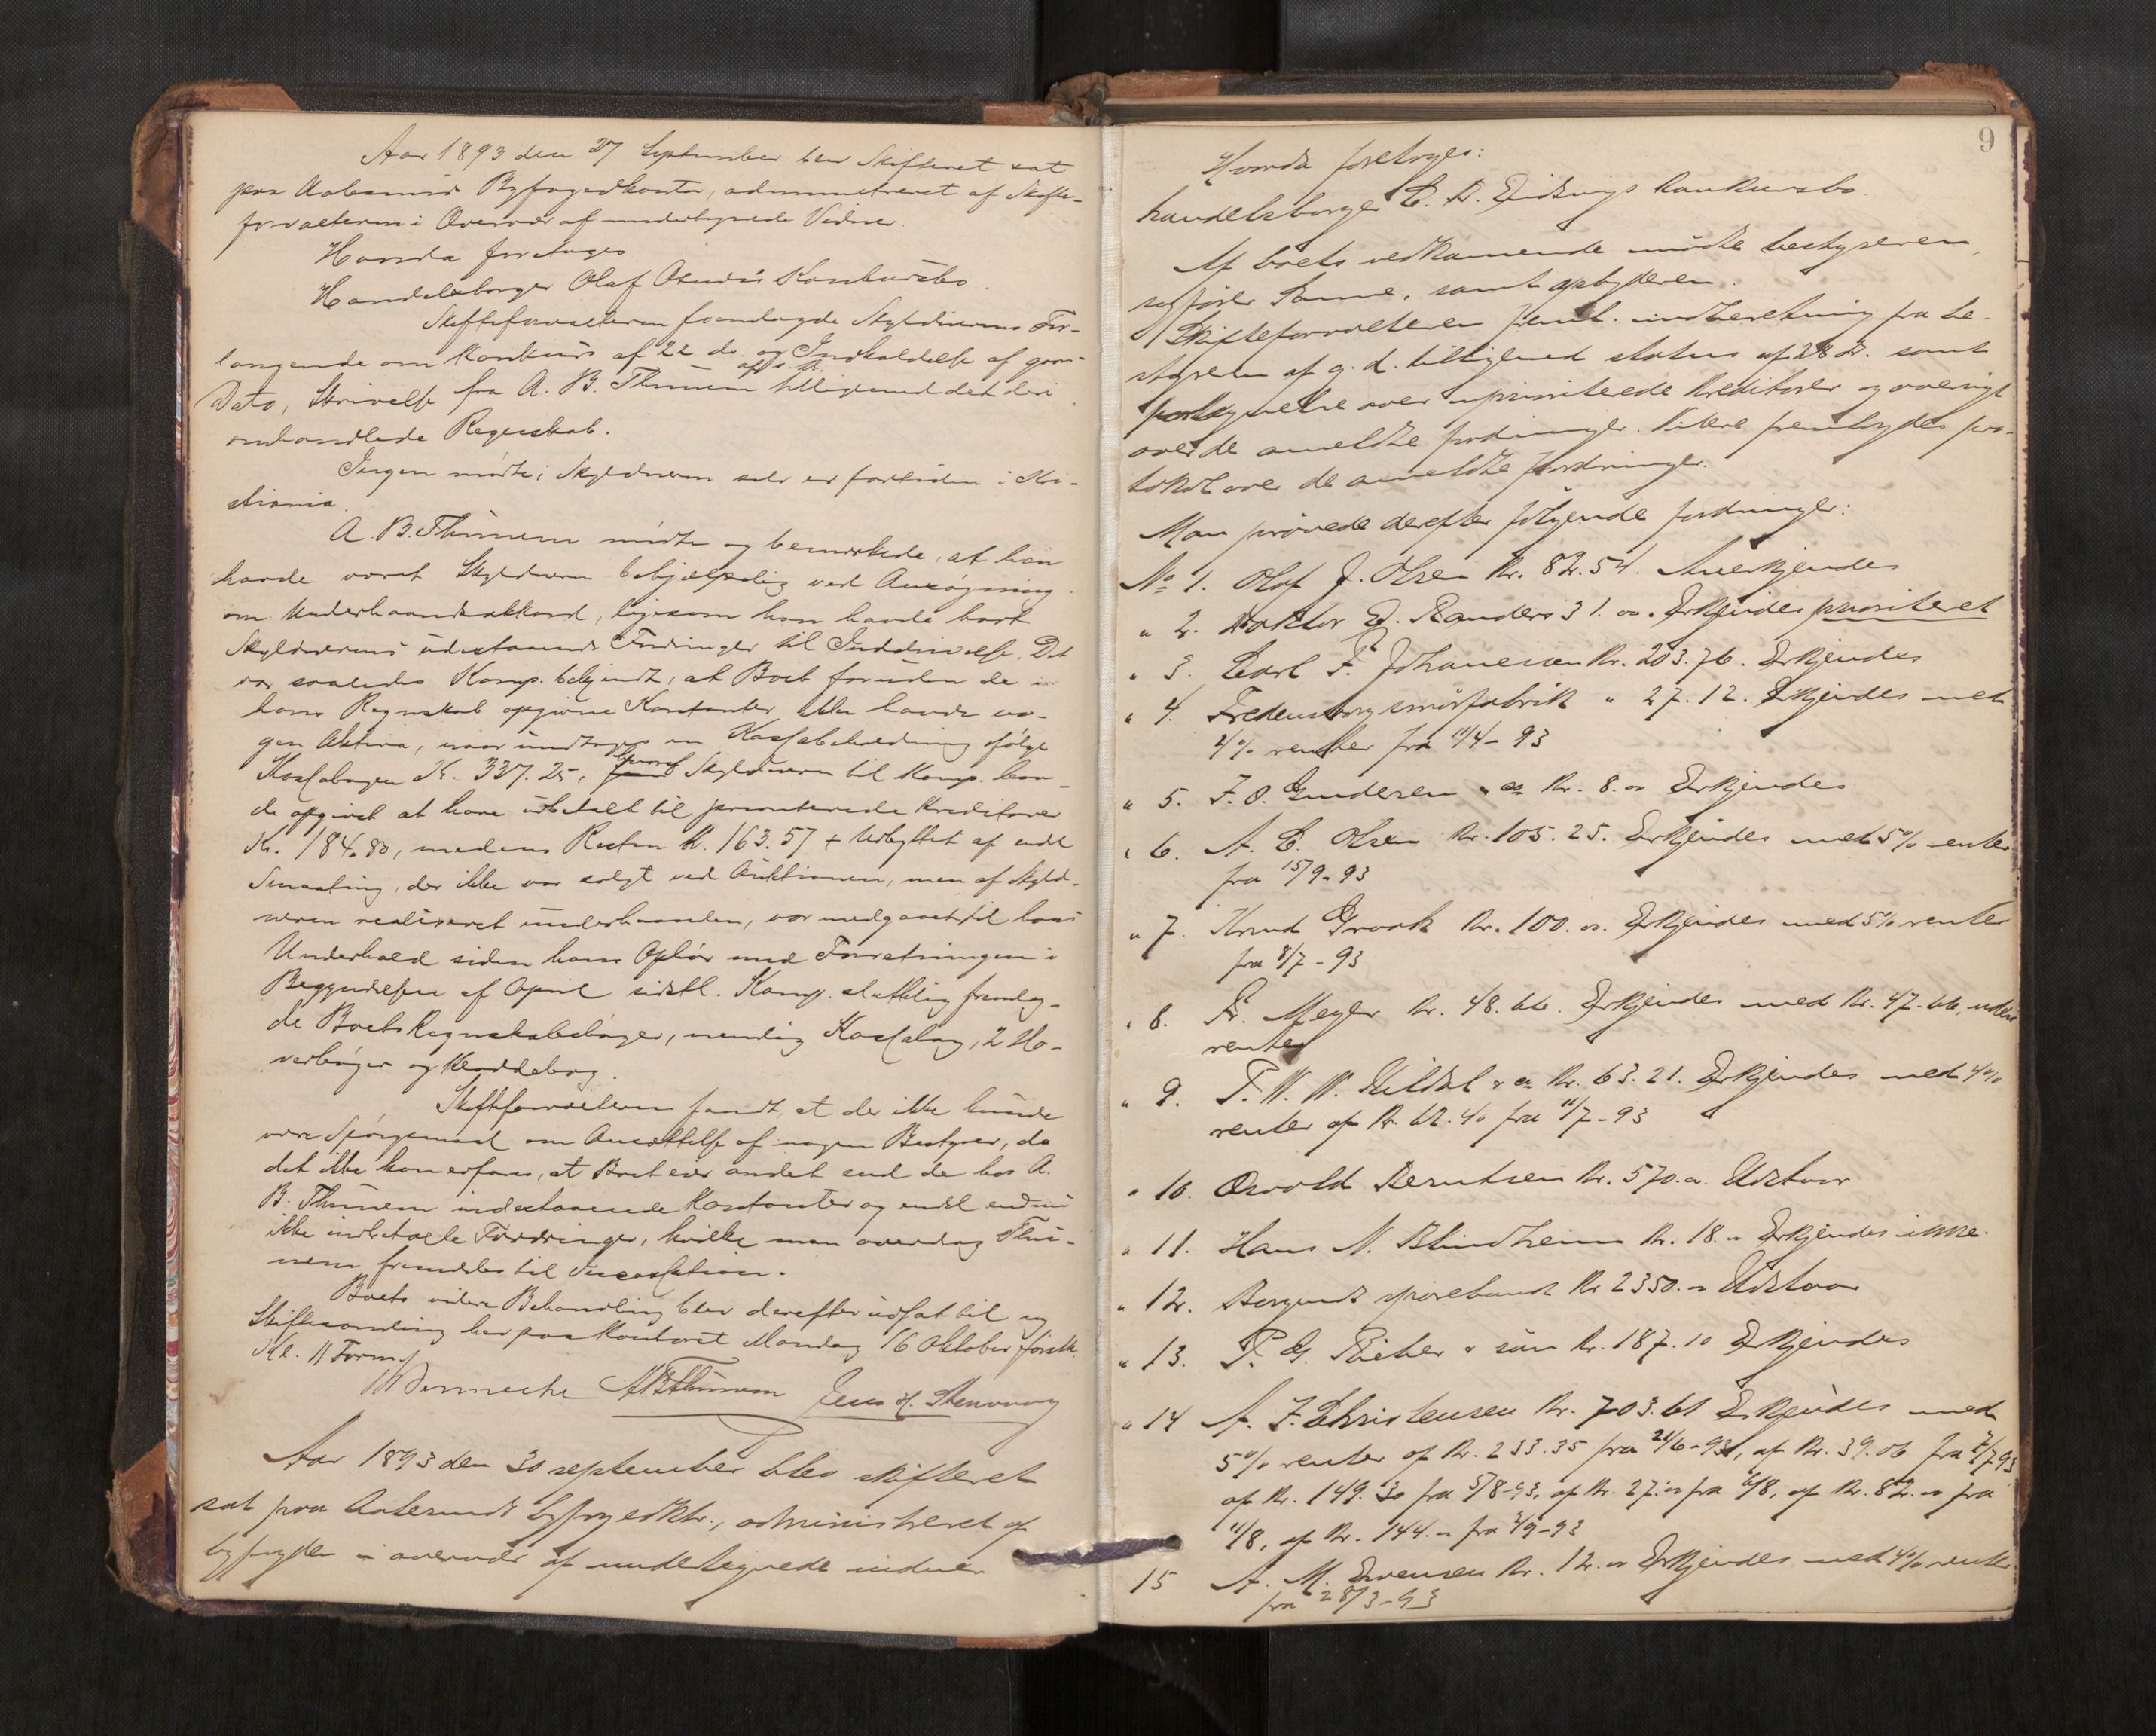 Aar 1893 den 27 September blev Skifteret sat
paa Aalesunds Byfogedkontor, administreret af Skifte-
forvalteren i Overvær af undertegnede Vidner.
Hvorda foretoges
Handelsborger Olaf Konkursbo.
Skifteforvalteren fremlagde Skyldnerens For-
langende om Konkurs af 22 ds. og Indkaldelse af gaars
Dato, Skrivelse fra A. B. Thunem tilligemed det deri
omhandlede Regnskab.
Ingen mødte; Skyldneren selv er fortiden i Kri-
stiania.
A. B. Thunem mødte og bemærkede, at han
havde været Skyldneren behjælpelig ved Ansøgning
om Underhaandsakkord, ligesom han havde havt
Skyldnerens udestaaende Fordringer til Inddrivelse. Det
var saaledes Komp. bekjendt, at Boet foruden de i
hans Regnskab opgivne Kontanter ikke havde no-
gen Aktiva, naar undtages en Kassabeholdning ifølge
Kassabogen Kr. 337.25, hvoraf Skyldneren til Komp. hav-
de opgivet at have udbetalt til prioriterede Kreditorer
Kr. 184.80, medens Resten Kr. 163.57 + Udbyttet af endel
Smaating, der ikke var solgt ved Auktionen, men af Skyld-
neren realiseret underhaanden, var medgaaet til hans
Underhold siden hans Ophør med Forretningen i
Begyndelsen af April sidstl. Komp. sluttelig fremlag-
de Boets Regnskabsbøger, nemlig Kassabog, 2 Ho-
vedbøger og Kladdebog.
Skifteforvalteren fandt, at der ikke kunde
være Spørgsmaal om Ansættelse af nogen Bestyrer, da
det ikke kan erfares, at Boet eier andet end de hos A.
B. Thunem indestaaende Kontanter og endel endnu
ikke indbetalte Fordringer, hvilke man overdrog Thu-
nem fremdeles til Incassation.
Boets videre Behandling blev derefter udsat til ny
Skiftesamling her paa Kontoret Mandag 16 Oktober førstk.
Kl. 11 Form.
ABThunem Jens H.
Aar 1893 den 30 september blev skifteret
sat paa Aalesunds byfogedktr., administreret af
byfogden i overvær af undertegnede vidner
9
Hvorda foretoges:
handelsborger C. D. konkursbo.
Af boets vedkommende mødte bestyreren,
sagfører samt opbyderen.
Skifteforvalteren freml. indberetning fra be-
styreren af g. d. tilligemed status af 28 ds. samt
fortegnelse over uprioriterede kreditorer og oversigt
over de anmeldte fordringer. Videre fremlagdes pro-
tokol over de anmeldte fordringer.
Man prøvede derefter følgende fordringer:
No 1. Olaf J. Olsen Kr. 82.54. Anerkjendes
" 2. Doktor E. Randers 31.00. Erkjendes prioriteret
" 3. Carl F. Johannesen Kr. 203.76. Erkjendes
" 4. Fredensborg smørfabrik " 27.12. Erkjendes med
4% renter fra 11/4-93
" 5. F. O. Gundersen & co Kr. 8.00 Erkjendes
" 6. A. C. Olsen Kr. 105.25. Erkjendes med 5% renter
fra 15/9-93
" 7. Knud Kr. 100.00. Erkjendes med 5% renter
fra 8/7-93
" 8. Fr. Meyer Kr. 48.66. Erkjendes med Kr. 47.66, uden
renter
" 9. & co Kr. 63.21. Erkjendes med 4%
renter af Kr. 62.40 fra 11/7-93
" 10. Osvald Berntsen Kr. 570.00. Udstaar
" 11. Hans N. Blindheim Kr. 18.00 Erkjendes ikke.
" 12. Borgunds sparebank Kr 2350.00 Udstaar
" 13. P. G. Rieber & søn Kr. 187.10 Erkjendes
" 14 A. F. Christensen Kr. 703.61 Erkjendes med
5% renter af Kr. 233.35 fra 21/6-93, af Kr. 39.06 fra 2/7 93
af Kr. 149.30 fra 5/8-93, af Kr. 27.00 fra 6/8, af Kr. 82.00 fra
11/8, af Kr. 144.00 fra 2/9-93
15 A. M. Kr. 12.00 Erkjendes med 4% renter
fra 28/3-93